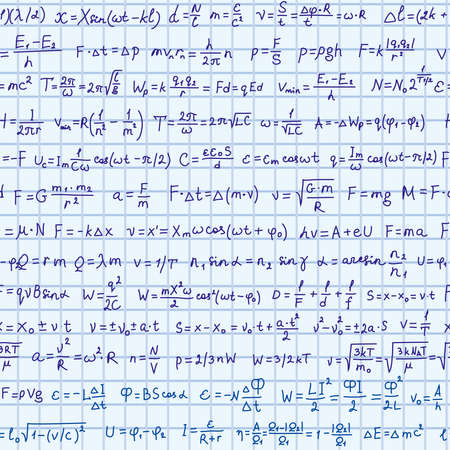 l)(λ/a) x=Xsin(ωt-kl) d=N/l m=C/c² v=S/t=Δφ·R/t=ω·R Δl=(2k+
E₁-E₂/h F·Δt=Δp mvₙrₙ=h/2π n p=F/S p=ρgh F=k|q₁q₂|/r² v
=mc² T=2π/ω=2π√l/g Wp=k q₁q₂/r=Fd=qEd νmin=E₁-E₂/h N=N₀2^1/T1/2 ε=
I=1/2πr νmin=R(1/n²-1/m²) T=2π/ω=2π√LC ω=1/√LC A=-ΔWp=q(φ₁-φ₂)
=-F Uc=Im 1/Cω cos(ωt-π/2) C=εε₀S/d e=εm cosωt q=Im/ω cos(ωt-π/2) F
F=G m₁·m₂/r² a=F/m F·Δt=Δ(m·v) v=√G·m/R F=mg M=F·d
=μ·N F=-kΔx v=x'=Xmωcos(ωt+φ₀) hν=A+eU F=ma F
-φ₂ Q=rm Q=λm ν=1/T n₁sinα=n₂sinγ α=arcsin n₂/n₁ U=φ₁
F=qvBsinα W=q²/2C W=mX²ω/2 cos²(ωt-φ₀) D=1/F+1/d+1/f S=x-x₀=v·t F
x=x₀±v·t v=±v₀±a·t S=x-x₀=v₀·t+a·t²/2 v²-v₀²=±2a·S ν=1/T x
3RT/μ a=v²/R=ω²·R n=N/V p=2/3nW W=3/2kT v=√3kT/m₀=√3kNaT/μ=√
F=ρVg ε=-L ΔI/Δt Φ=BScosα ε=-N ΔΦ/Δt W=LI²/2=ΦI/2=Φ²/2L ν₀=A/h
=l₀√1-(v/c)² U=φ₁-φ₂ I=ε/R+r η=A/Q₁=Q₁-|Q₂|/Q₁=1-|Q₂|/Q₁ ΔE=Δmc² l